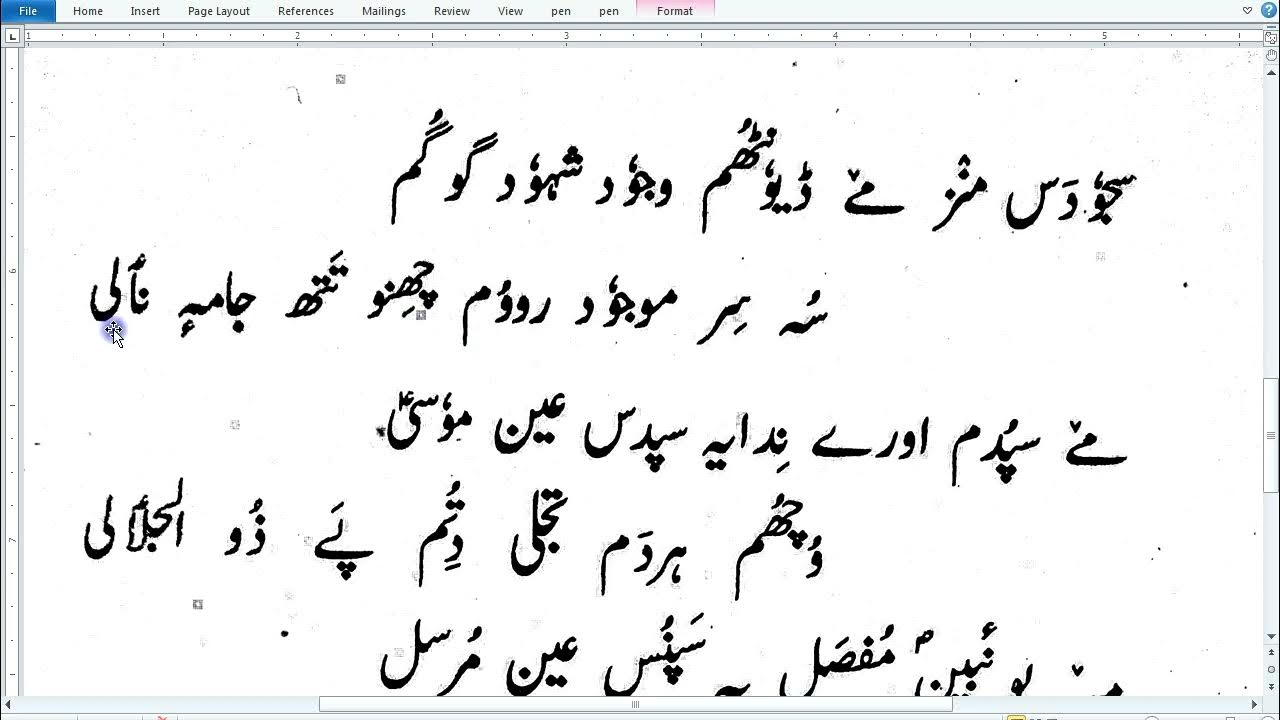 File Home Insert Page Layout References Mailings Review View pen pen Format
1 2 3 4 5
سجوٗدَس منٛز مےٚ ڈیوٗنٹھُم وجوٗد شہوٗد گو گُم
سُہ سِر موجوٗد رووُم چھِنو تَتھ جامہٕ نٲلی
مےٚ سپُدم اورے نِدایہ سپدس عین موٗسیٰؑ
وُچھُم ہردَم تجلی دِتُم پَے ذُو الجلٲلی
نٔبین مُفصَل سَپنُس عین مُرسل
6
7